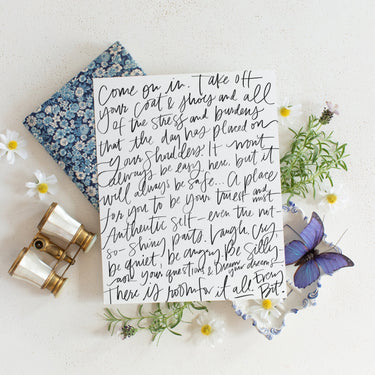 Come on in. Take off
your coat & shoes and all
of the stress and burdens
that the day has placed on
your shoulders. It won't
always be easy here, but it
will always be safe... A place
for you to be your truest and most
Authentic self - even the not
so-shiny parts. Laugh, cry,
be quiet, be angry. Be silly
ask your questions & Dream your dreams
there is room for it all. Every
Bit.